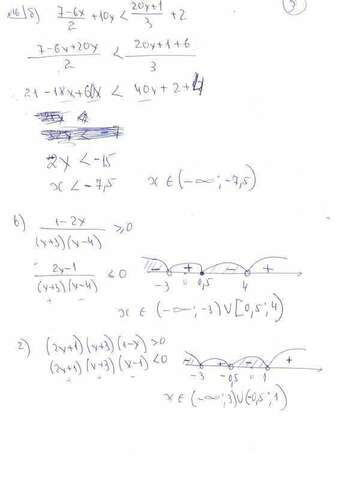 б) (7-6x)/2 + 10x < (20x+1)/3 + 2
(7-6x+20x)/2 < (20x+1+6)/3
21-18x+60x < 40x+2+
2x < -15
x < -7,5 x ∈ (-∞; -7,5)
в) (1-2x)/((x+3)(x-4)) ≥ 0
(2x-1)/((x+3)(x-4)) ≤ 0
- + - +
-3 0 0,5 4
x ∈ (-∞; -3) ∪ [0,5; 4)
2) (2x+1)(x+3)(1-x) > 0
(2x+1)(x+3)(x-1) < 0
- + - +
-3 -0,5 0 1
x ∈ (-∞; 3) ∪ (-0,5; 1)